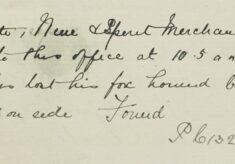 Wine & Spirit Merchan
to this office at 10.5 am
has lost his fox hound b
on side Found
P C 132